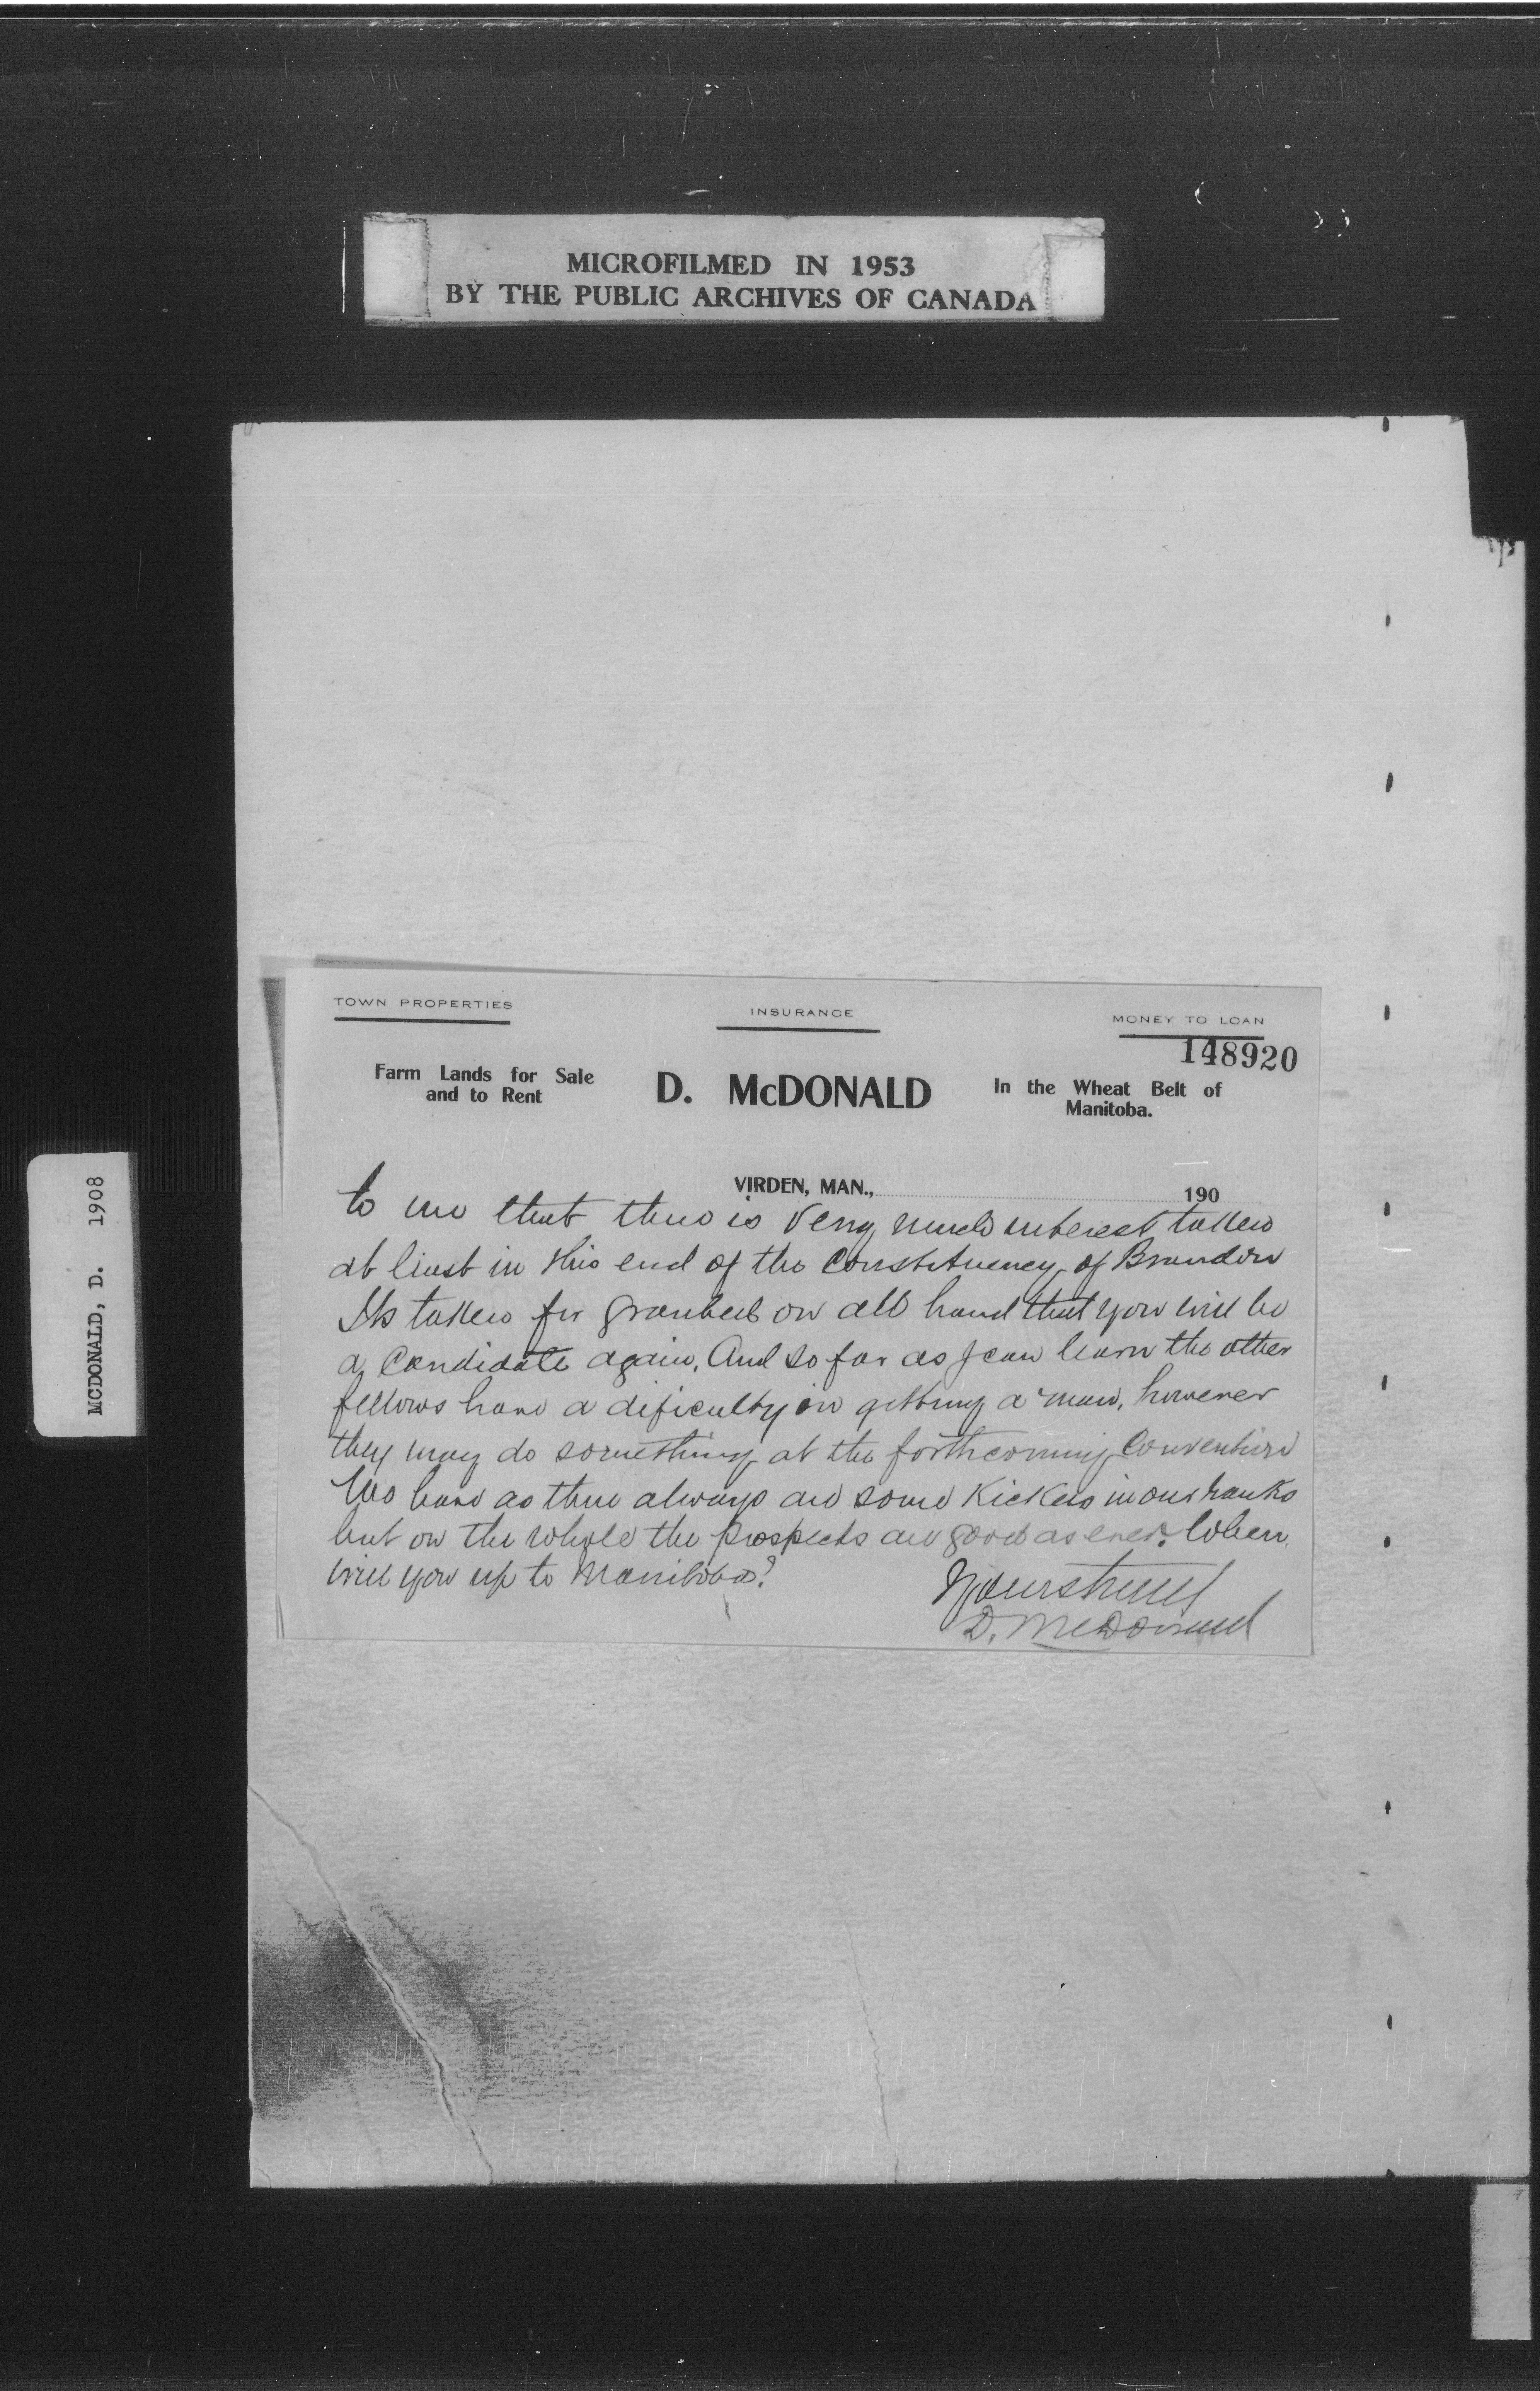 MICROFILMED IN 1953
BY THE PUBLIC ARCHIVES OF CANADA
MCDONALD, D. 1908
TOWN PROPERTIES
INSURANCE
MONEY TO LOAN
148920
Farm Lands for Sale
and to Rent
D. McDONALD
In the Wheat Belt of
Manitoba.
VIRDEN, MAN., 190
to me that there is very much interest taken
at least in this end of the Constituency of Brandon
Its taken for granted on all hand that you will be
a Candidate again, And so far as I can learn the other
fellows have a dificulty in getting a man, however
they may do something at the forthcoming Convention
We have as there always are some Kickers in our ranks
but on the whole the prospects are good as ever. When
will you up to Manitoba?
Yours truly
D. McDonald